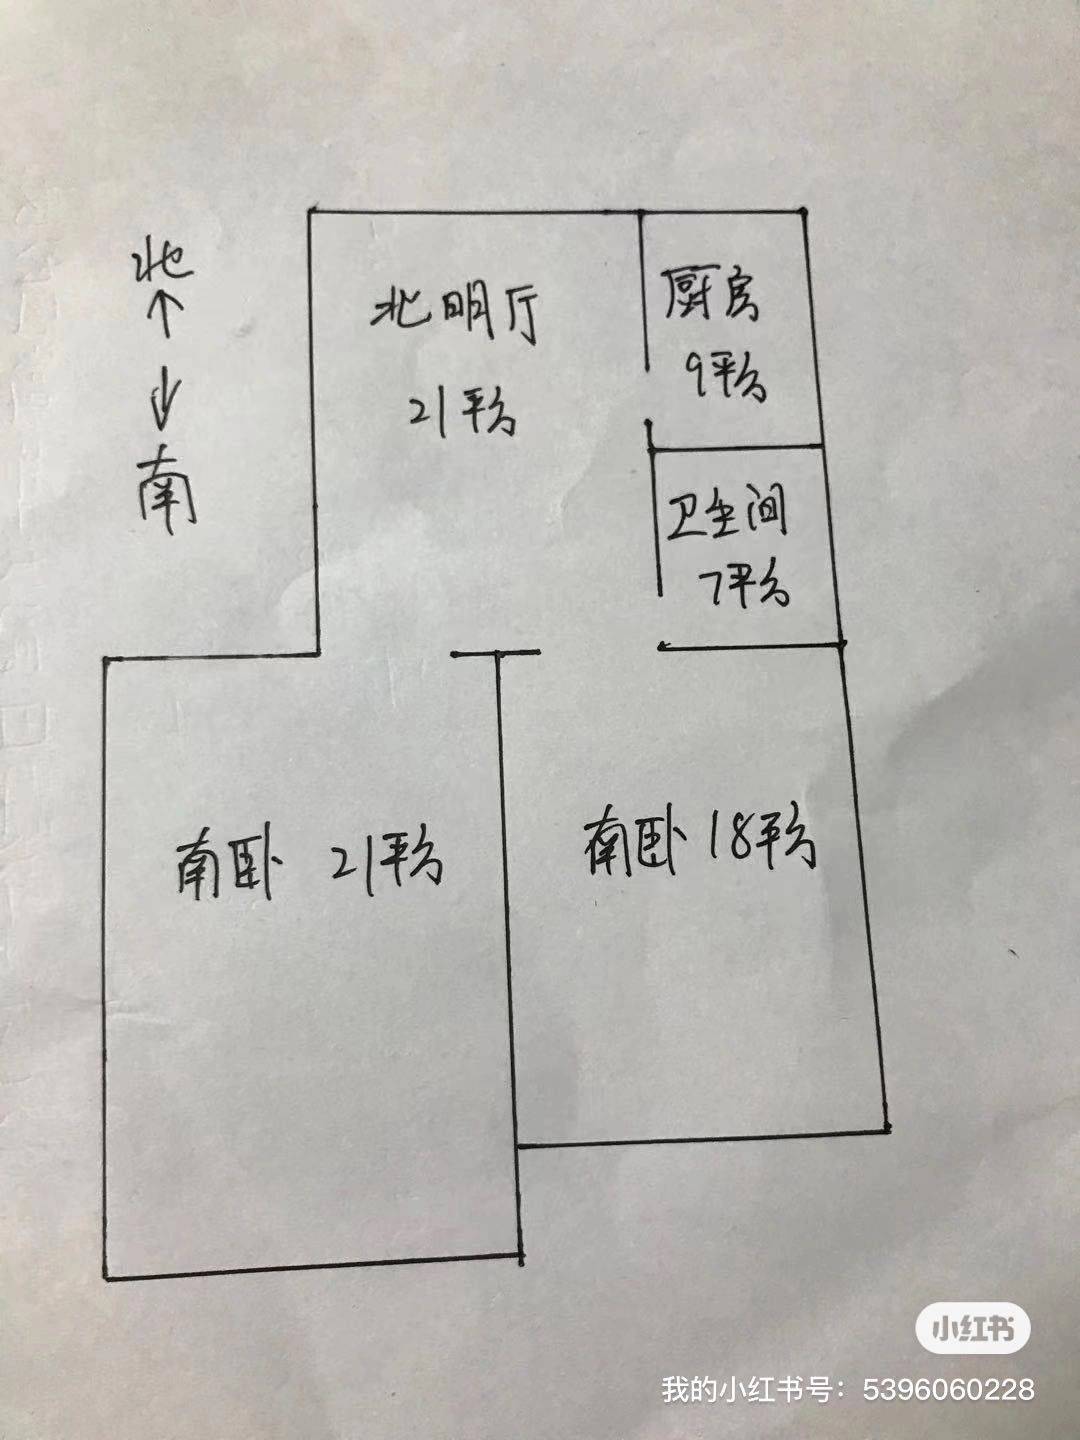 北
南
北明厅
21平方
厨房
9平方
卫生间
7平方
南卧 21平方
南卧 18平方
小红书
我的小红书号：5396060228